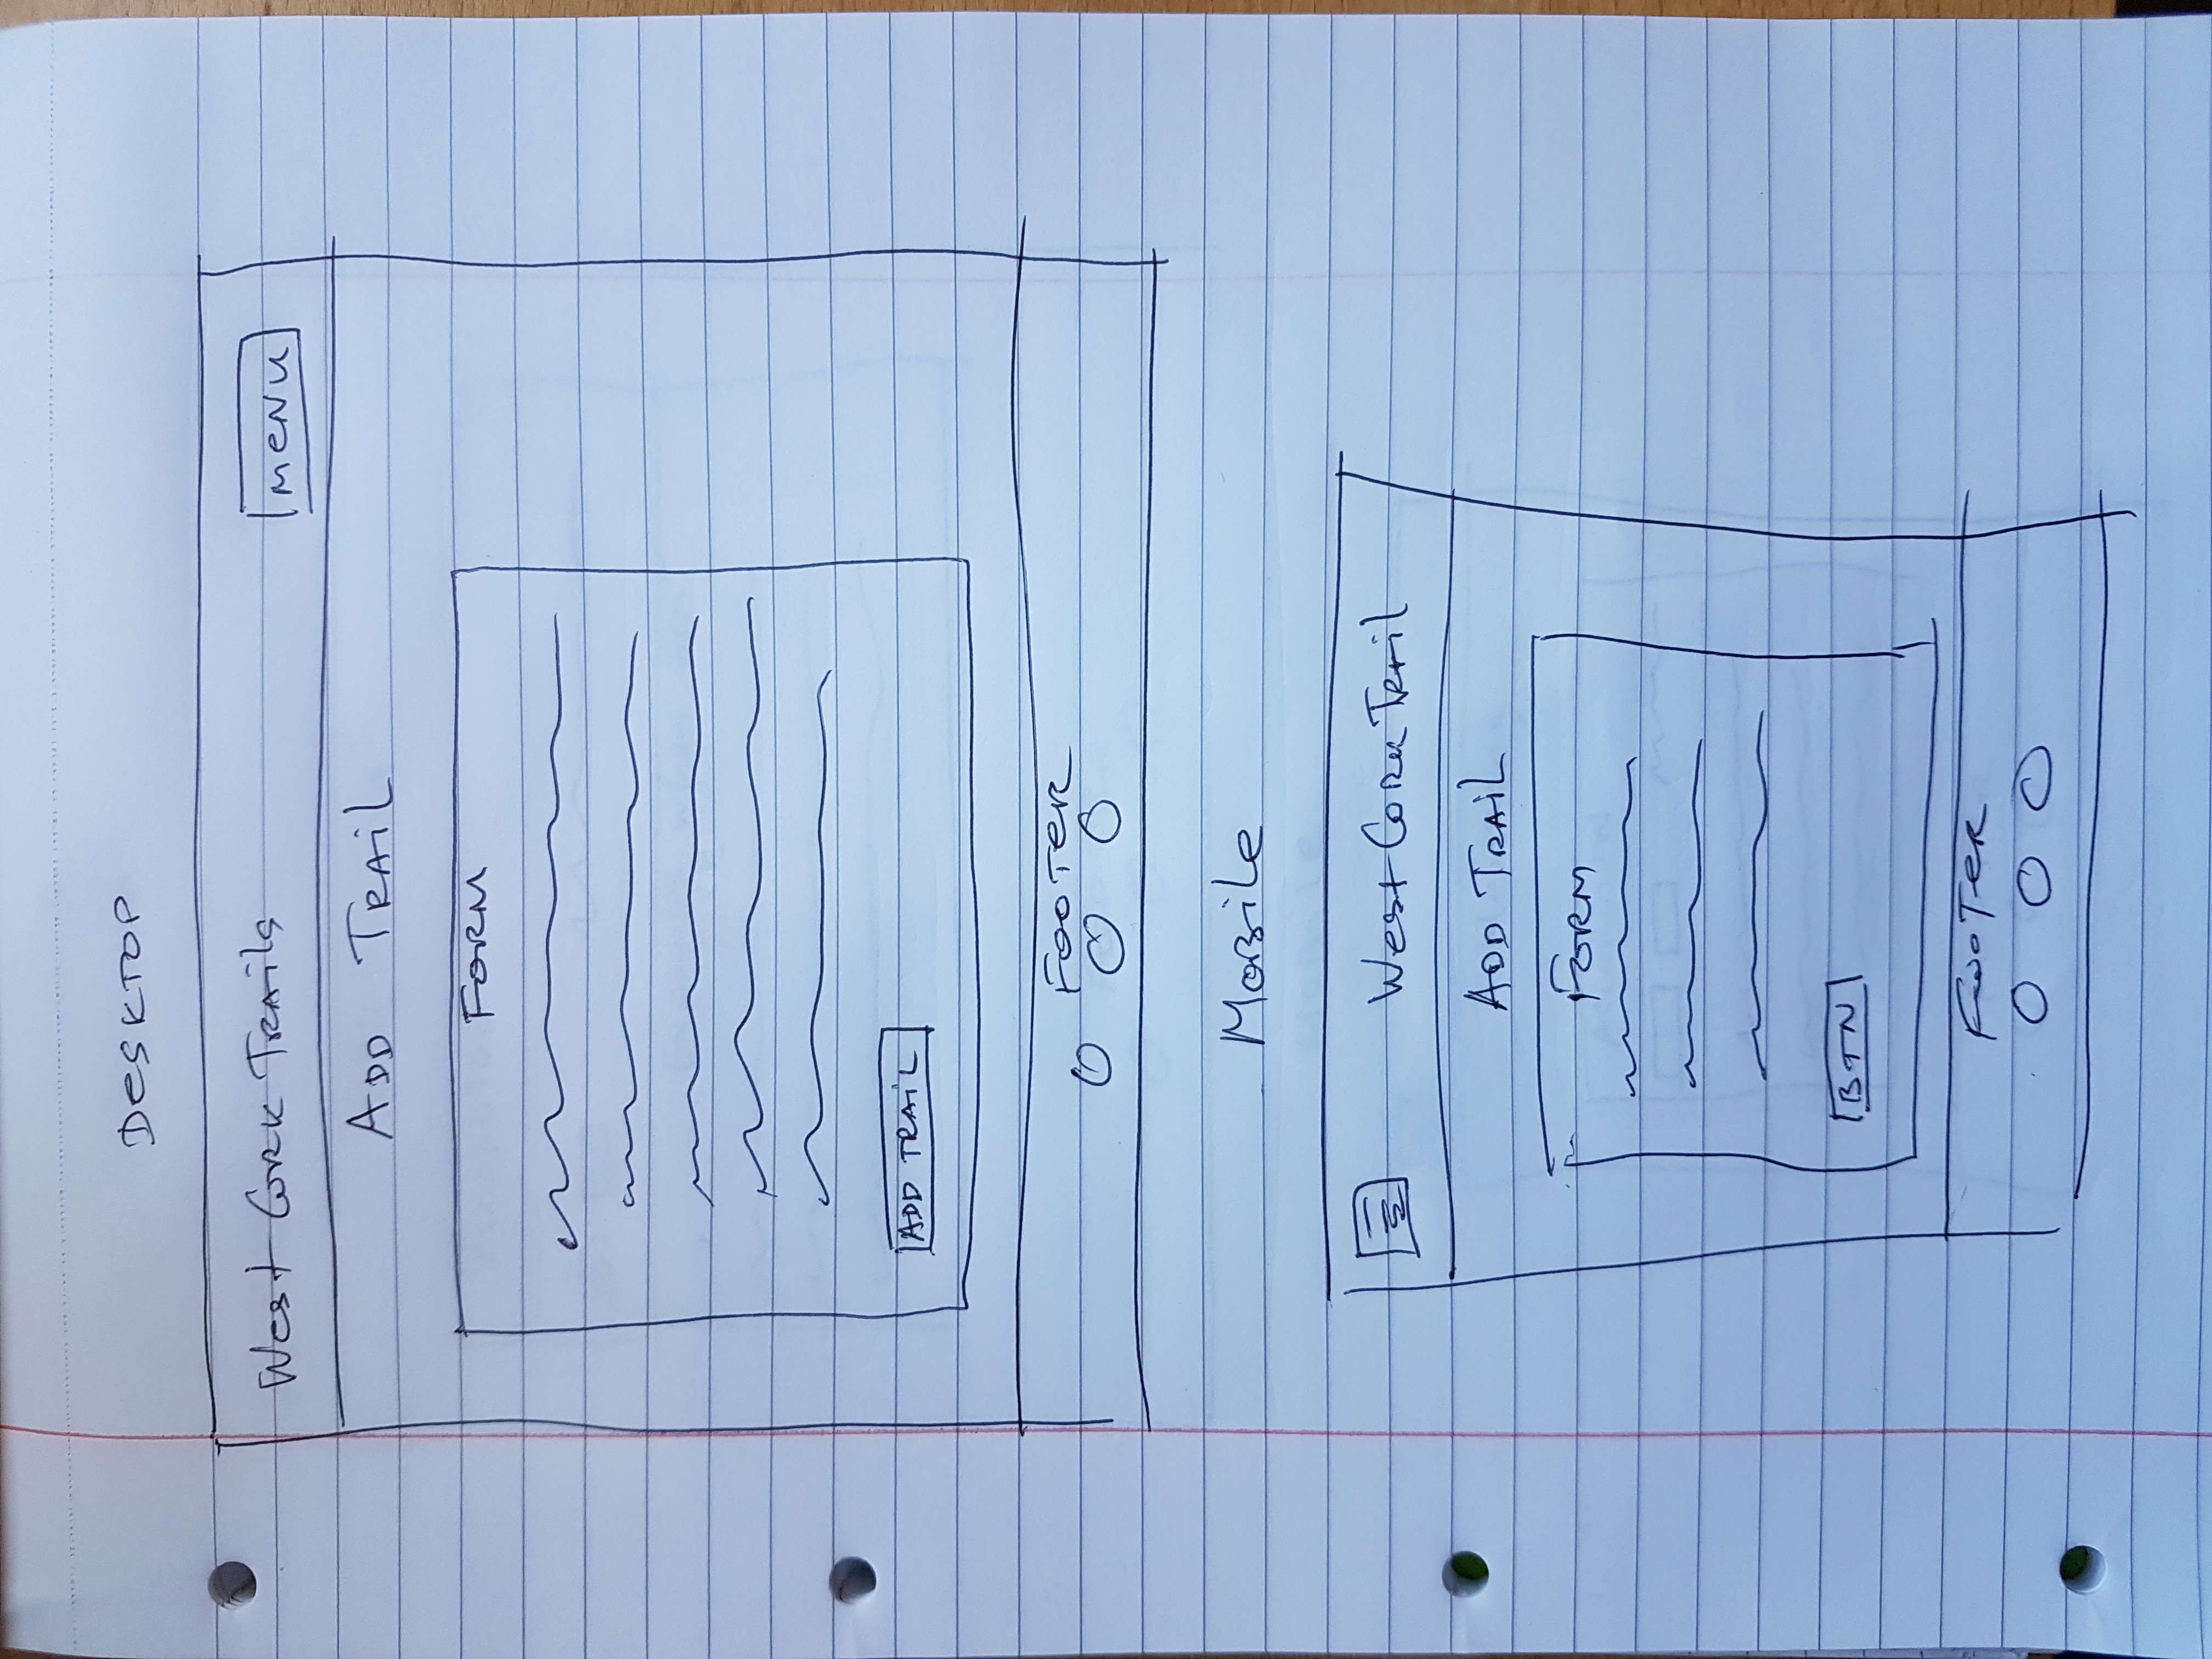 DESKTOP
West Cork Trails
MENU
ADD TRAIL
FORM
ADD TRAIL
FOOTER
Mobile
West Cork Trail
ADD TRAIL
FORM
BTN
FOOTER